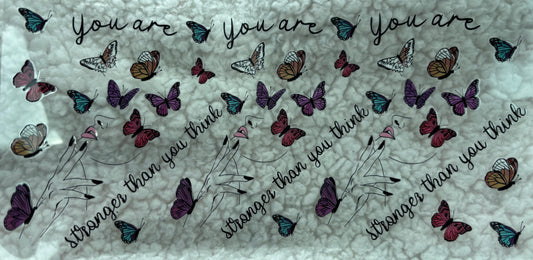 you are you are you are
stronger than you think stronger than you think stronger than you think